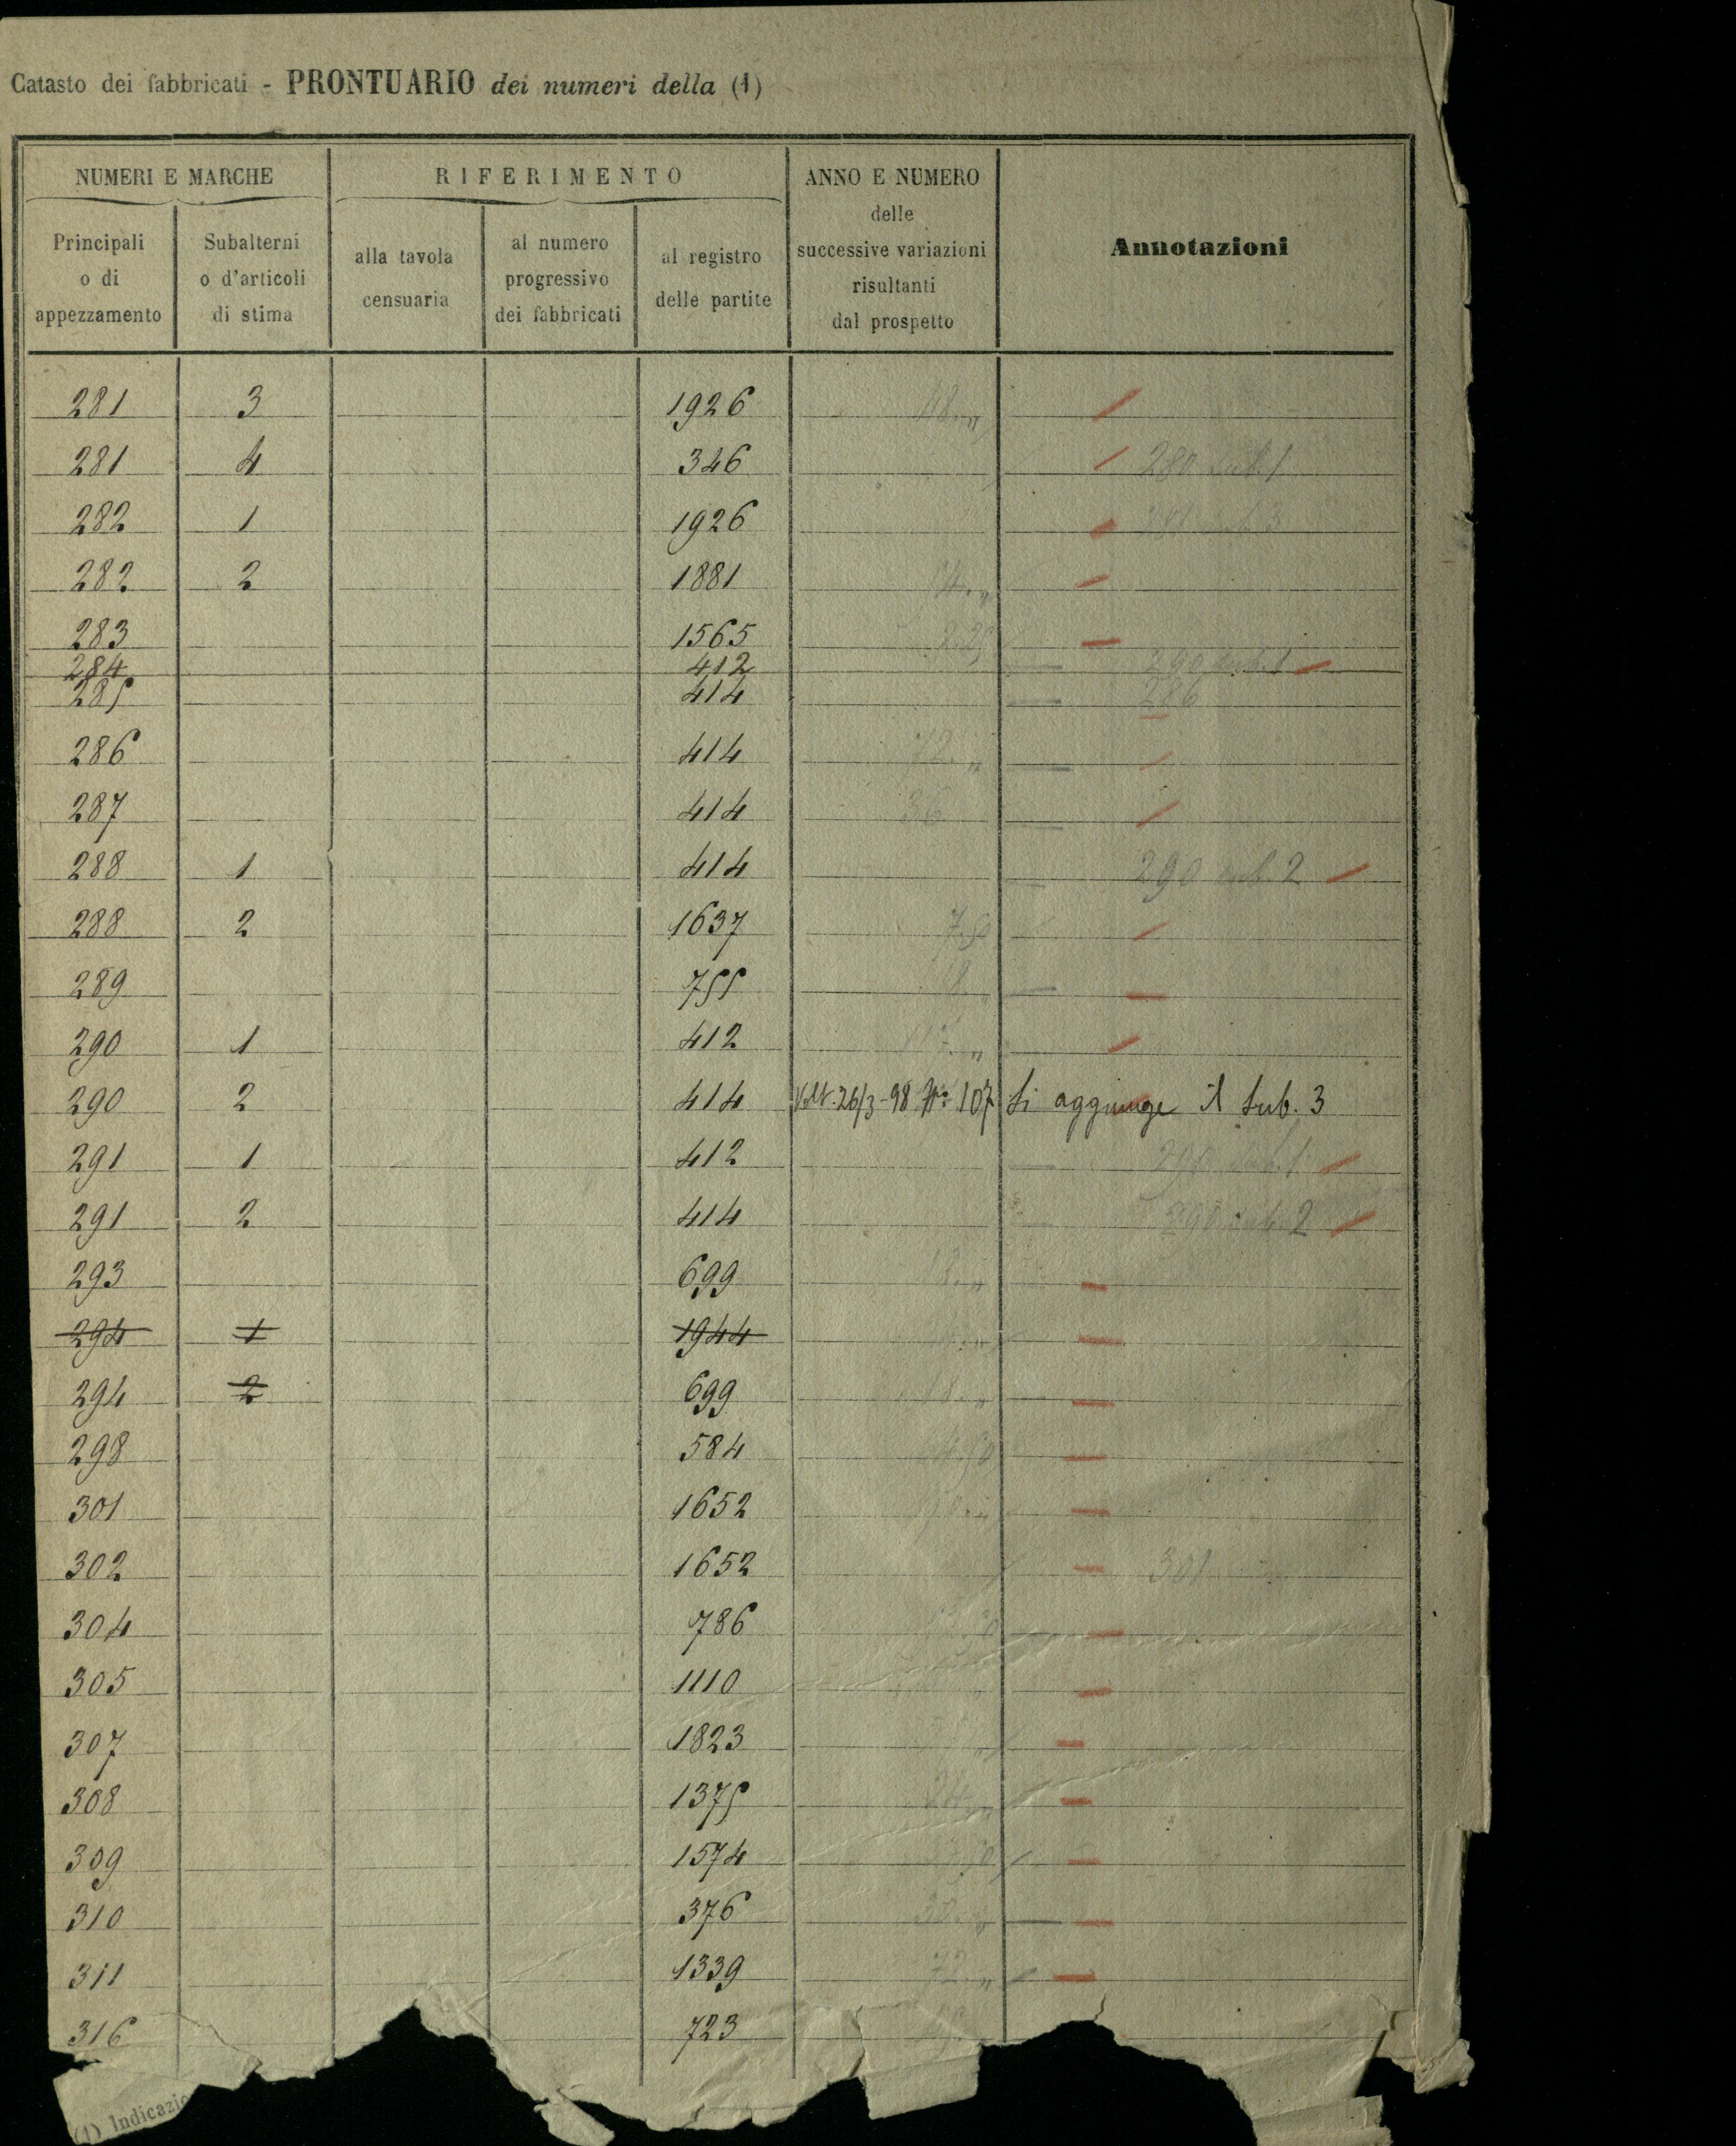 Catasto dei fabbricati - PRONTUARIO dei numeri della (1)
NUMERI E MARCHE
RIFERIMENTO
ANNO E NUMERO
delle
successive variazioni
risultanti
dal prospetto
Annotazioni
Principali
o di
appezzamento
Subalterni
o d'articoli
di stima
alla tavola
censuaria
al numero
progressivo
dei fabbricati
al registro
delle partite
281 3 1926
281 4 346 280 sub. 1
282 1 1926
282 2 1881
283 1565
284 412 290 sub. 1
285 414 286
286 414 72. "
287 414 36
288 1 414 290 sub. 2
288 2 1637 7.50
289 755
290 1 412
290 2 414 26/3-98 No 107 Si aggiunge il sub. 3
291 1 412 290 sub. 1
291 2 414 290 sub. 2
293 699
294 1 1944
294 2 699
298 584
301 1652
302 1652 301
304 786
305 1110
307 1823
308 1375 24. "
309 1574
310 376
311 1339 72. "
316 723
(1) Indicazio